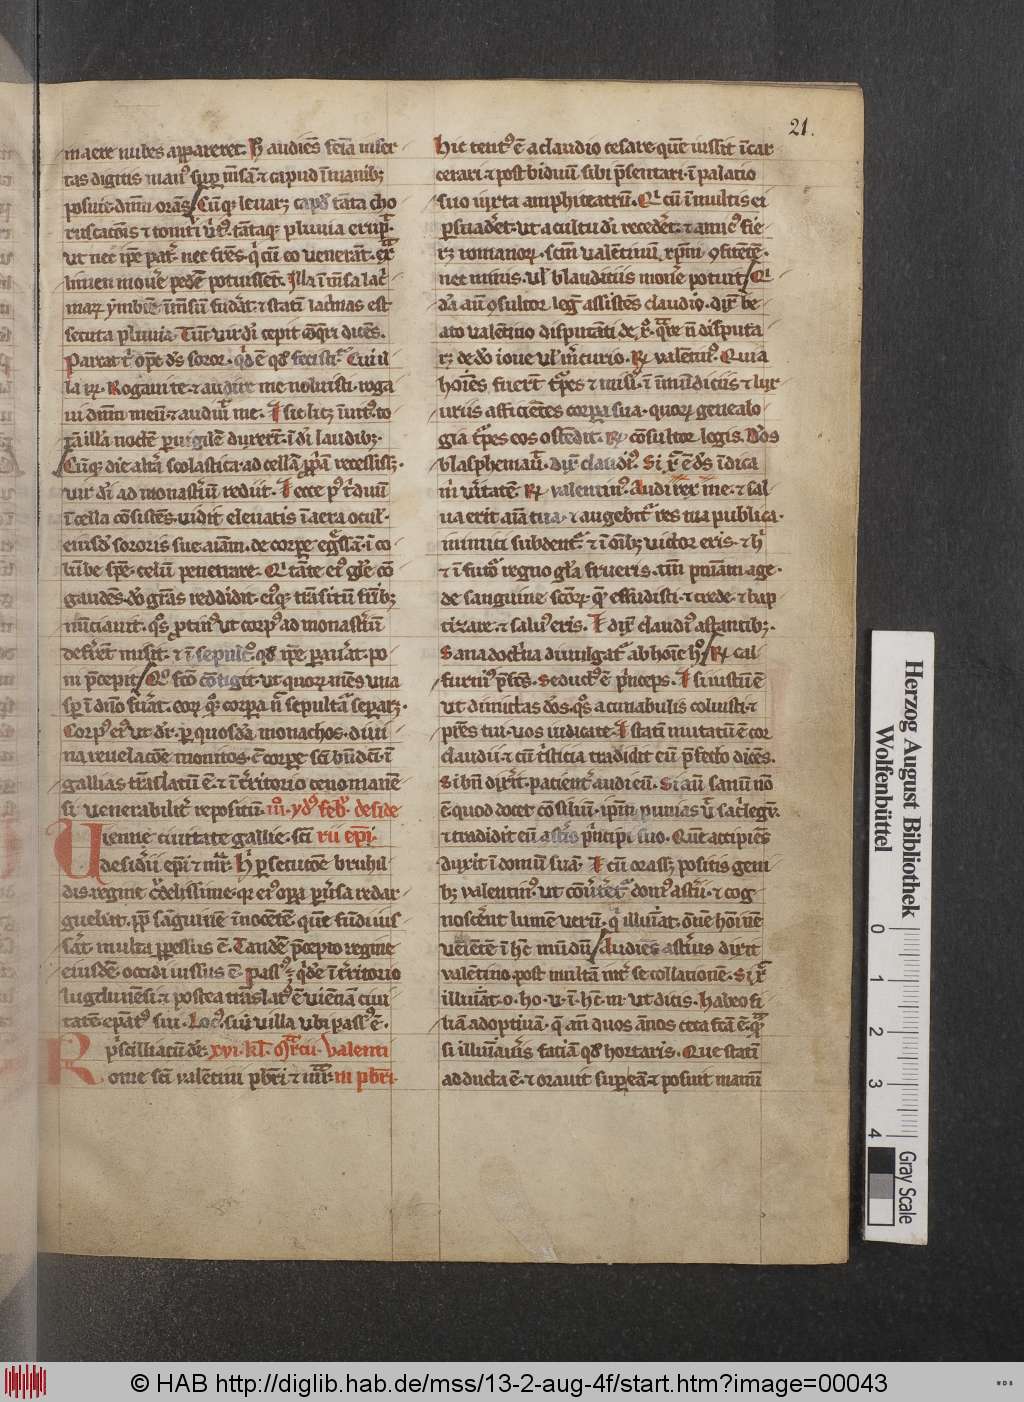 21.
in aere nubes appareret. h̄ audiēs scīa inser
tas digitis man᷒ sup̄ mēsā ⁊ capud ī manib;
posuit. dn̄m orans. Cūq; leuar; capđ tāta cho
ruscatiōīs ⁊ tonitrui tātaq; pluuia erup
ut nec ip̄e pat̄ nec fr̄es q̄ cū eo uenerāt.
limen mouere pedē potuissēt. Illa ī mēsa lac̄
mar; ymbrē fudat ⁊ statī lac̄mas est
secuta pluuia. Tūc uir dī cepit q̄ri dicēs.
Parcat t̄ op̄s ds̄ soror. q̄d ē qđ fecisti. Cui il
la R. Rogaui te. ⁊ audire me noluisti. roga
ui dn̄m meū. ⁊ audiuit me. ⁊ sic ī uic̄ to
tā illā noctē peruigilē duxerūt. ī dī laudib;.
Cūq; die altā scolastica ad cellā p̄p̄ā recessiss;.
uir dī ad monast̄iū rediit. ⁊ ecce p᷒ t̄duū
ī cella cōsistēs. uidit eleuatis ī aera ocul̄.
eiusđ sororis sue aīam. de corpe eḡssā. ī co
lūbe sp̄e celū penetrare. Q̄ tāte ei᷒ gl̄e cō
gaudēs. dō gr̄as reddidit. ei᷒q; trāsitū fr̄ib;
nūciauit. q̄s p̄tin᷒ ut corp᷒ ad monast̄iū
deferēt misit. ⁊ ī sepulc᷒ qđ ip̄e parauat po
ni p̄cepit. Q̄ fc̄o cōtigit. ut quor; mēs una
sp̄ ī dn̄o fuat. eor; q̄; corpa n̄ sepultā separ;.
Corp᷒ ei᷒ ut dr̄. p̄ quosdā monachos. diui
na reuelacōe monitos. c̄ corpe sc̄i b̄ndc̄i. ī
gallias trāslatū ē. ⁊ ī t̄ritorio cenomanē
si uenerabilit̄ repositū. iii. yd᷒ feb̄. de side
Uienne ciuitate gallie. sc̄i rii ep̄i.
desid̄ii ep̄i ⁊ mr̄. H̄ p̄secutōe brunhil
dis regine c̄delissime. q̄ ei᷒ opa puersa redar
guebat. p̄p̄ sāguinē īnocētē. quē fūdi iuss
sāt. multa p̄pessus ē. Tandē p̄cepto regine
eiusdē occidi iussus ē. Pass᷒ q̄de ī t̄ritorio
lugdunēsi. ⁊ postea trāslat᷒ ē uiēnā ciui
tatē ep̄at᷒ sui. Loc᷒ uilla ubi pass᷒ ē.
p̄scilliacū dr̄. xvi. kl̄. Marcii. Valenti
Rome sc̄i ualētini pb̄ri ⁊ mr̄. ni pb̄ri.
Hic tent᷒ ē a claudio cesare. quē iussit īcar
cerari. ⁊ post biduū. sibi p̄sentari. ī palacio
suo iuxta amphiteatrū. Q̄ cū ī multis ei
p̄suađet. ut a cultu dī recedēt. ⁊ amic᷒ fie
r; romanor;. sc̄m ualētinū. xp̄m ꝯfitētē.
nec minis. ul̄ blandiciis mouē potuit. Q̄
dā aūt ꝯsultor leg᷒ assistēs claudio. dix̄ be
ato ualētino disputāti de x᷒. q̄re n̄ disputa
r; de dō ioue ul̄ m̄curio. R̄ ualēti᷒. Quia
hoīes fuerūt t̄pes ⁊ miseri. ī īmūdiciis ⁊ lux
uriis afficiētes corpa sua. quor; genealo
gia t̄pes eos ostēdit. R̄ cōsultor legis. D̄os
blasphemauit. dix̄ claudi᷒. Si x̄ ē d̄s. īdica
m̄ ueritatē. R̄ ualentin᷒. Audi rex me. ⁊ sal
ua erit aīa tua. ⁊ augebit᷒ res tua publica.
inimici subdent᷒. ⁊ ī oīb; uictor eris. ⁊ h̄
⁊ ī futuro regno gl̄a frueris. tm̄ pniam age.
de sanguine scōr; q̄ effudisti. ⁊ crede. ⁊ bap
tizare. ⁊ salu᷒ eris. ⁊ dix̄ claudi᷒ astantib;.
Sana doctr̄a diuulgat᷒ ab hoīe h᷒. R̄ cal
furni᷒ p̄fc̄s. Seduct᷒ ē p̄nceps. ⁊ si iustū ē
ut dimictas dōs. q̄s a cunabulis coluisti. ⁊
p̄res tui. uos iudicate. ⁊ statī mutatū ē cor
claudii. ⁊ cū t̄sticia tradidit eū p̄fecto dicēs.
Si bn̄ dix̄it. patient̄ audi eū. Si aūt sanū nō
ē quod docet cōsiliū. ip̄m punias ut sac̄legū.
⁊ tradidit eū ast̄io p̄ncipi suo. Quē accipiēs
duxit ī domū suā. ⁊ cū orass; positis geni
b; ualentin᷒. ut cōuertet᷒ dom᷒ ast̄ii. ⁊ cog
noscēnt lumē uerū. q̄ illuīat. oīnē hoīnē
ueiētē ī hc̄ mūdū. Audiēs ast̄ius dixit
ualētino. post multā int̄ se collationē. Si x̄
illuīat. o. ho. u. ī. hc̄. m. ut dicis. Habeo fi
liā adoptiuā. q̄ aū duos ānos ceca fc̄a ē. q̄
si illuīaueris faciā qđ hortaris. Que statī
adducta ē. ⁊ orauit sup eā. ⁊ posuit manū
Herzog August Bibliothek
Wolfenbüttel
0
1
2
3
4
Gray Scale
© HAB http://diglib.hab.de/mss/13-2-aug-4f/start.htm?image=00043